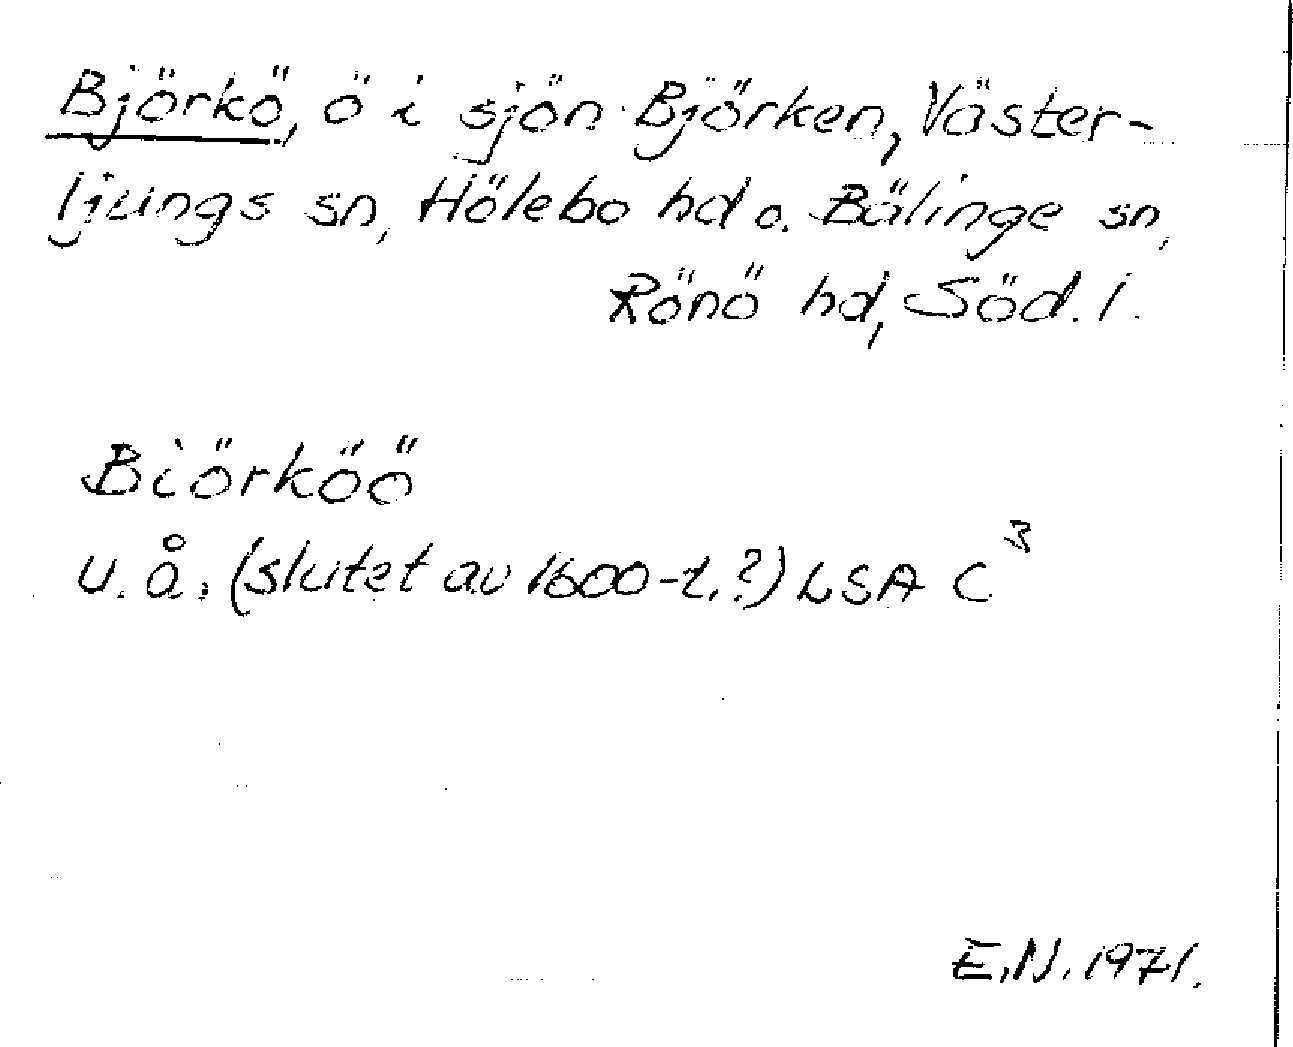 Björkö, ö i sjön Björken, Väster-
ljungs sn, Hölebo hd o. Bälinge sn,
Rönö hd, Söd. l.
Biörköö
u. å. (slutet av 1600-t.?) LSA C³
E.N. 1971.